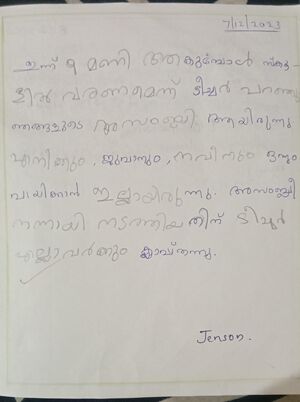 7/12/2023
ഇന്ന് 9 മണി ആകുമ്പോൾ സ്കൂ-
ളിൽ വരണമെന്ന് ടീച്ചർ പറഞ്ഞു
ഞങ്ങളുടെ അസംബ്ലി ആയിരുന്നു
എനിക്കും, ജുവാനും, നവീനും ഒന്നും
വായിക്കാൻ ഇല്ലായിരുന്നു. അസംബ്ലി
നന്നായി നടത്തിയതിന് ടീച്ചർ
എല്ലാവർക്കും ക്ലാപ്തന്നു.
Jenson.